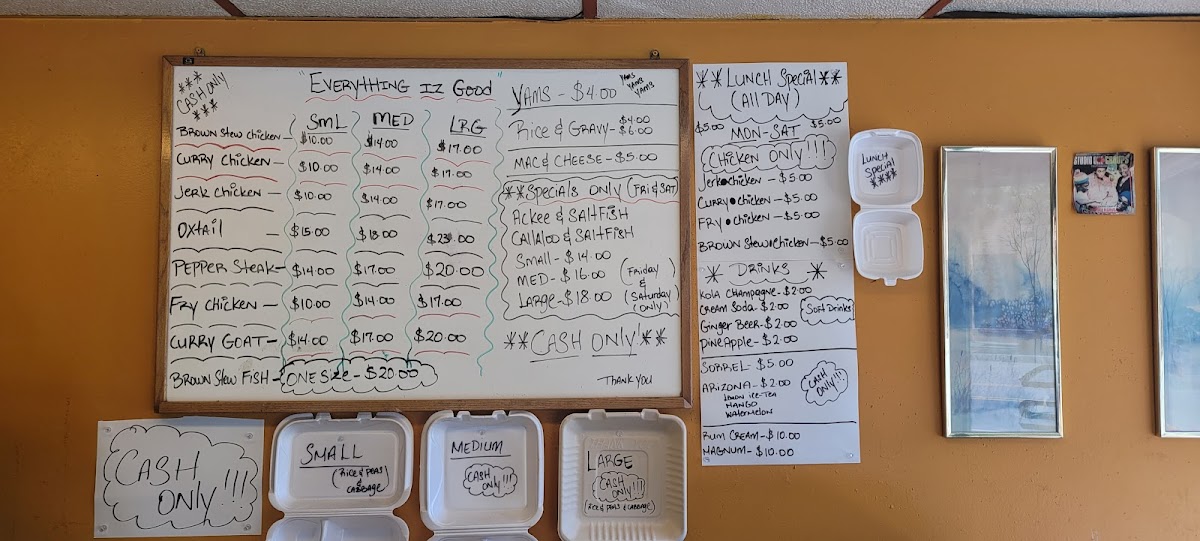 ***
CASH ONLY
***
"EVERYTHING IZ GOOD"
SML MED LRG
BROWN STEW CHICKEN - $10.00 $14.00 $17.00
CURRY CHICKEN - $10.00 $14.00 $17.00
JERK CHICKEN - $10.00 $14.00 $17.00
OXTAIL - $15.00 $18.00 $23.00
PEPPER STEAK - $14.00 $17.00 $20.00
FRY CHICKEN - $10.00 $14.00 $17.00
CURRY GOAT - $14.00 $17.00 $20.00
BROWN STEW FISH - ONE SIZE - $20.00
YAMS - $4.00
YAMS
YAMS
YAMS
RICE & GRAVY - $4.00
$6.00
MAC & CHEESE - $5.00
**SPECIALS ONLY (FRI & SAT)
ACKEE & SALTFISH
CALLALOO & SALTFISH
SMALL - $14.00
MED - $16.00
LARGE - $18.00
(FRIDAY
&
SATURDAY
ONLY)
**CASH ONLY!**
THANK YOU
**LUNCH SPECIAL**
(ALL DAY)
$5.00 MON-SAT $5.00
CHICKEN ONLY!!!!
JERK CHICKEN - $5.00
CURRY CHICKEN - $5.00
FRY CHICKEN - $5.00
BROWN STEW CHICKEN - $5.00
* DRINKS *
KOLA CHAMPAGNE - $2.00
CREAM SODA - $2.00
GINGER BEER - $2.00
PINEAPPLE - $2.00
SOFT DRINKS
SORREL - $5.00
ARIZONA - $2.00
LEMON ICE-TEA
MANGO
WATERMELON
CASH ONLY!!!
RUM CREAM - $10.00
MAGNUM - $10.00
LUNCH
SPECIAL
****
CASH
ONLY!!!
SMALL
(RICE & PEAS
&
CABBAGE)
MEDIUM
CASH
ONLY!!!
LARGE
CASH
ONLY!!!
(RICE & PEAS & CABBAGE)